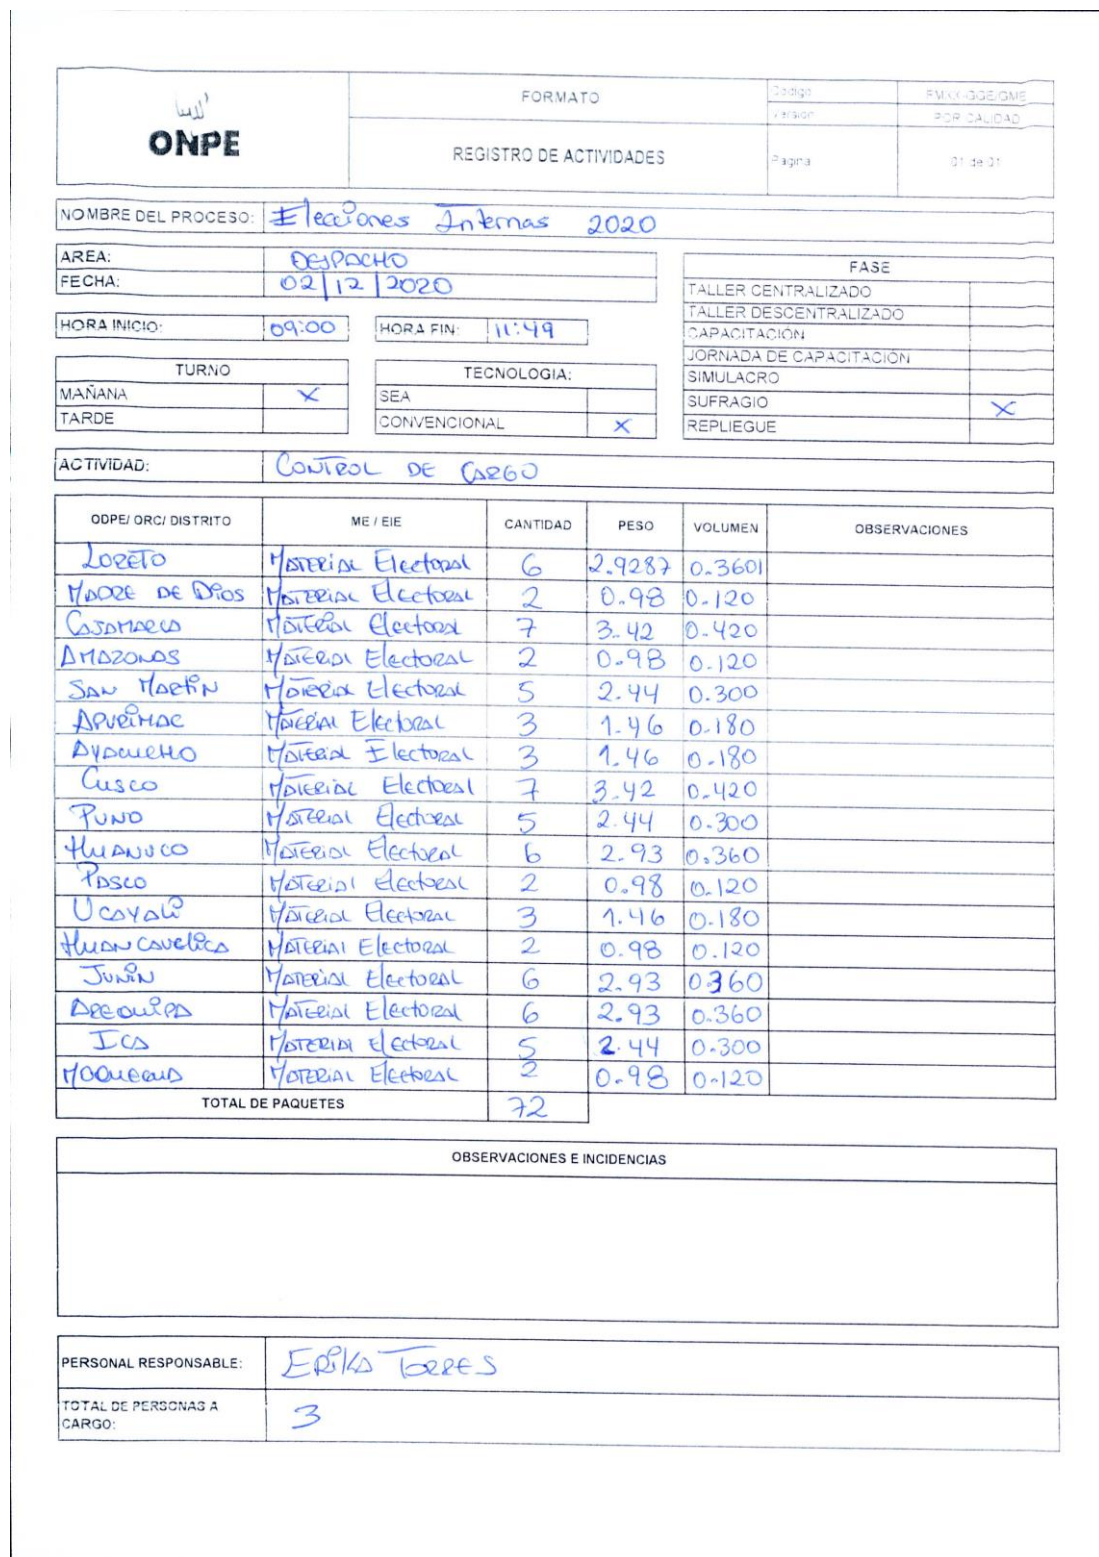 ONPE
FORMATO
REGISTRO DE ACTIVIDADES
Código FMXX-GGE/GME
Versión POR CALIDAD
Página 01 de 01
NOMBRE DEL PROCESO: Elecciones Internas 2020
AREA: DESPACHO
FECHA: 02/12/2020
HORA INICIO: 09:00 HORA FIN: 11:49
FASE
TALLER CENTRALIZADO
TALLER DESCENTRALIZADO
CAPACITACIÓN
JORNADA DE CAPACITACIÓN
SIMULACRO
SUFRAGIO X
REPLIEGUE
TURNO
MAÑANA X
TARDE
TECNOLOGIA:
SEA
CONVENCIONAL X
ACTIVIDAD: CONTROL DE CARGO
ODPE/ ORC/ DISTRITO ME / EIE CANTIDAD PESO VOLUMEN OBSERVACIONES
LORETO MATERIAL Electoral 6 2.9287 0.3601
MADRE DE DIOS MATERIAL Electoral 2 0.98 0.120
CAJAMARCA MATERIAL Electoral 7 3.42 0.420
AMAZONAS MATERIAL Electoral 2 0.98 0.120
SAN MARTIN MATERIAL Electoral 5 2.44 0.300
APURIMAC MATERIAL Electoral 3 1.46 0.180
AYACUCHO MATERIAL Electoral 3 1.46 0.180
CUSCO MATERIAL Electoral 7 3.42 0.420
PUNO MATERIAL Electoral 5 2.44 0.300
HUANUCO MATERIAL Electoral 6 2.93 0.360
PASCO MATERIAL Electoral 2 0.98 0.120
UCAYALI MATERIAL Electoral 3 1.46 0.180
HUANCAVELICA MATERIAL Electoral 2 0.98 0.120
JUNIN MATERIAL Electoral 6 2.93 0.360
AREQUIPA MATERIAL Electoral 6 2.93 0.360
ICA MATERIAL Electoral 5 2.44 0.300
MOQUEGUA MATERIAL Electoral 2 0.98 0.120
TOTAL DE PAQUETES 72
OBSERVACIONES E INCIDENCIAS
PERSONAL RESPONSABLE: ERIKA TORRES
TOTAL DE PERSONAS A
CARGO: 3